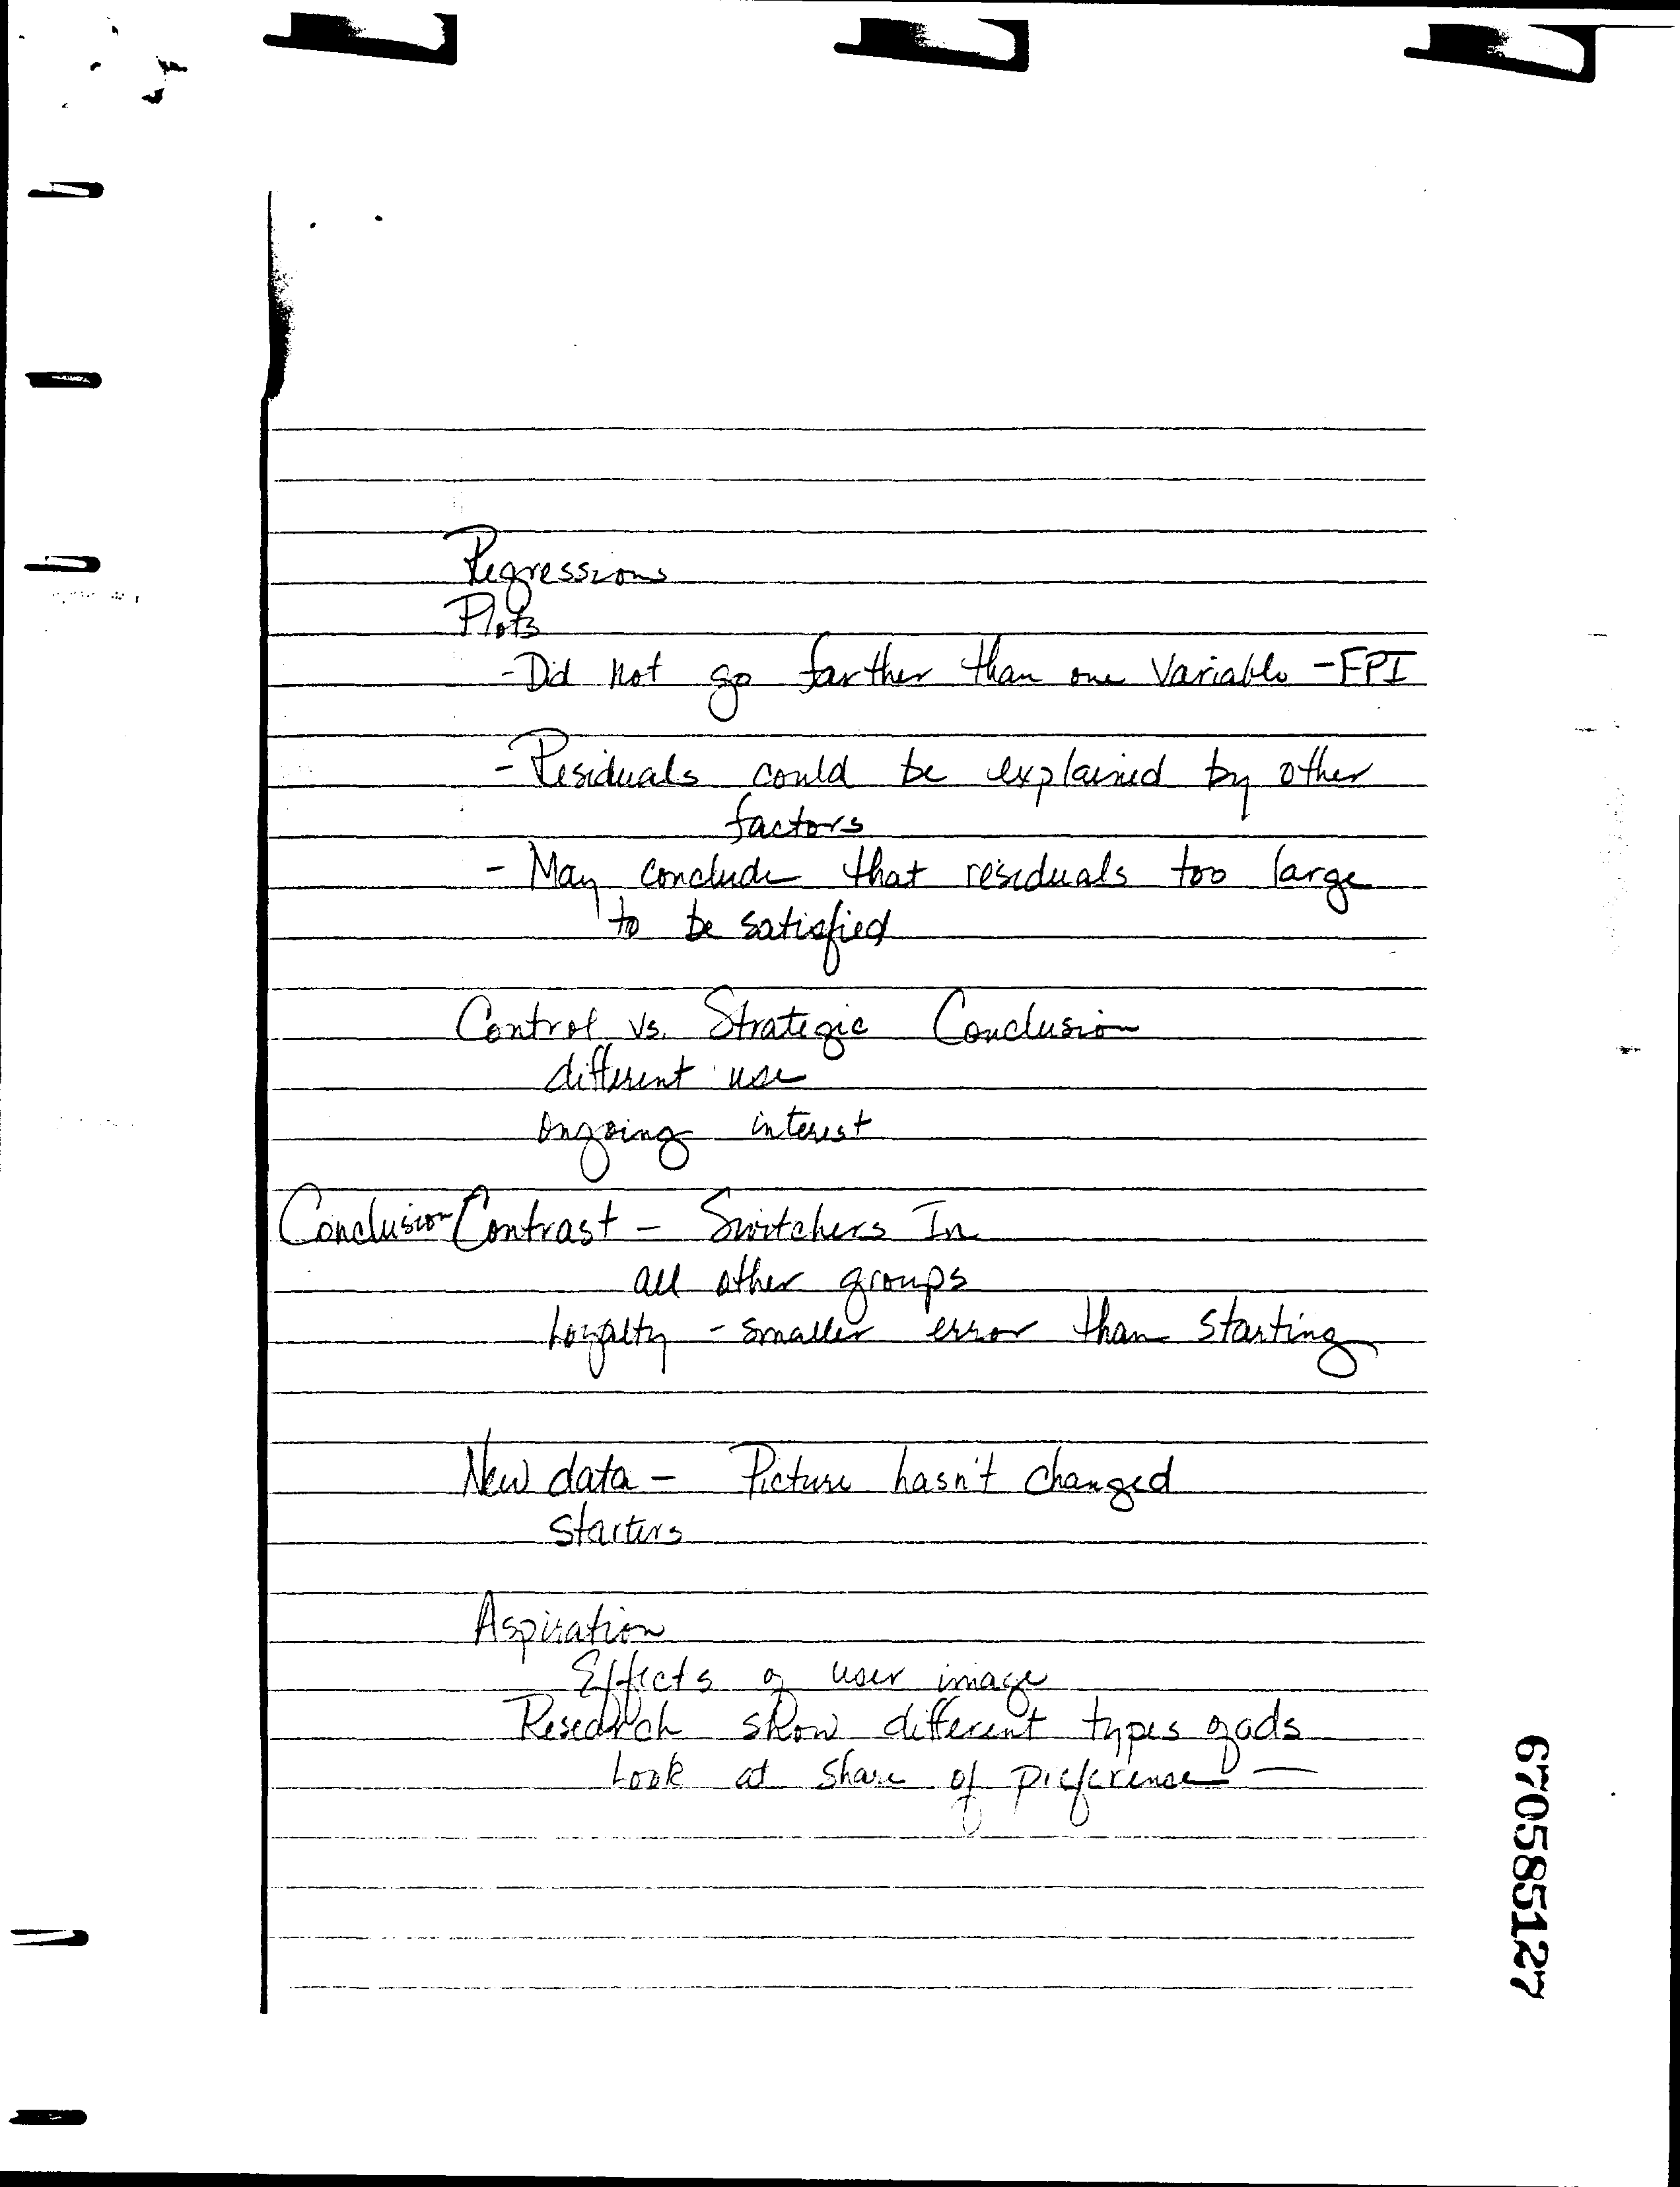 Regressions
Plots
- Did not go farther than one Variable - FPI
- Residuals could be explained by other
factors
- May conclude that residuals too large
to be satisfied
Control vs. Strategic Conclusion
different use
Ongoing interest
Conclusion Contrast - Switchers In
all other groups
Loyalty - smaller error than starting
New data - Picture hasn't changed
starters
Aspiration
Effects of user image
Research show different types of ads
Look at share of preference -
670585127